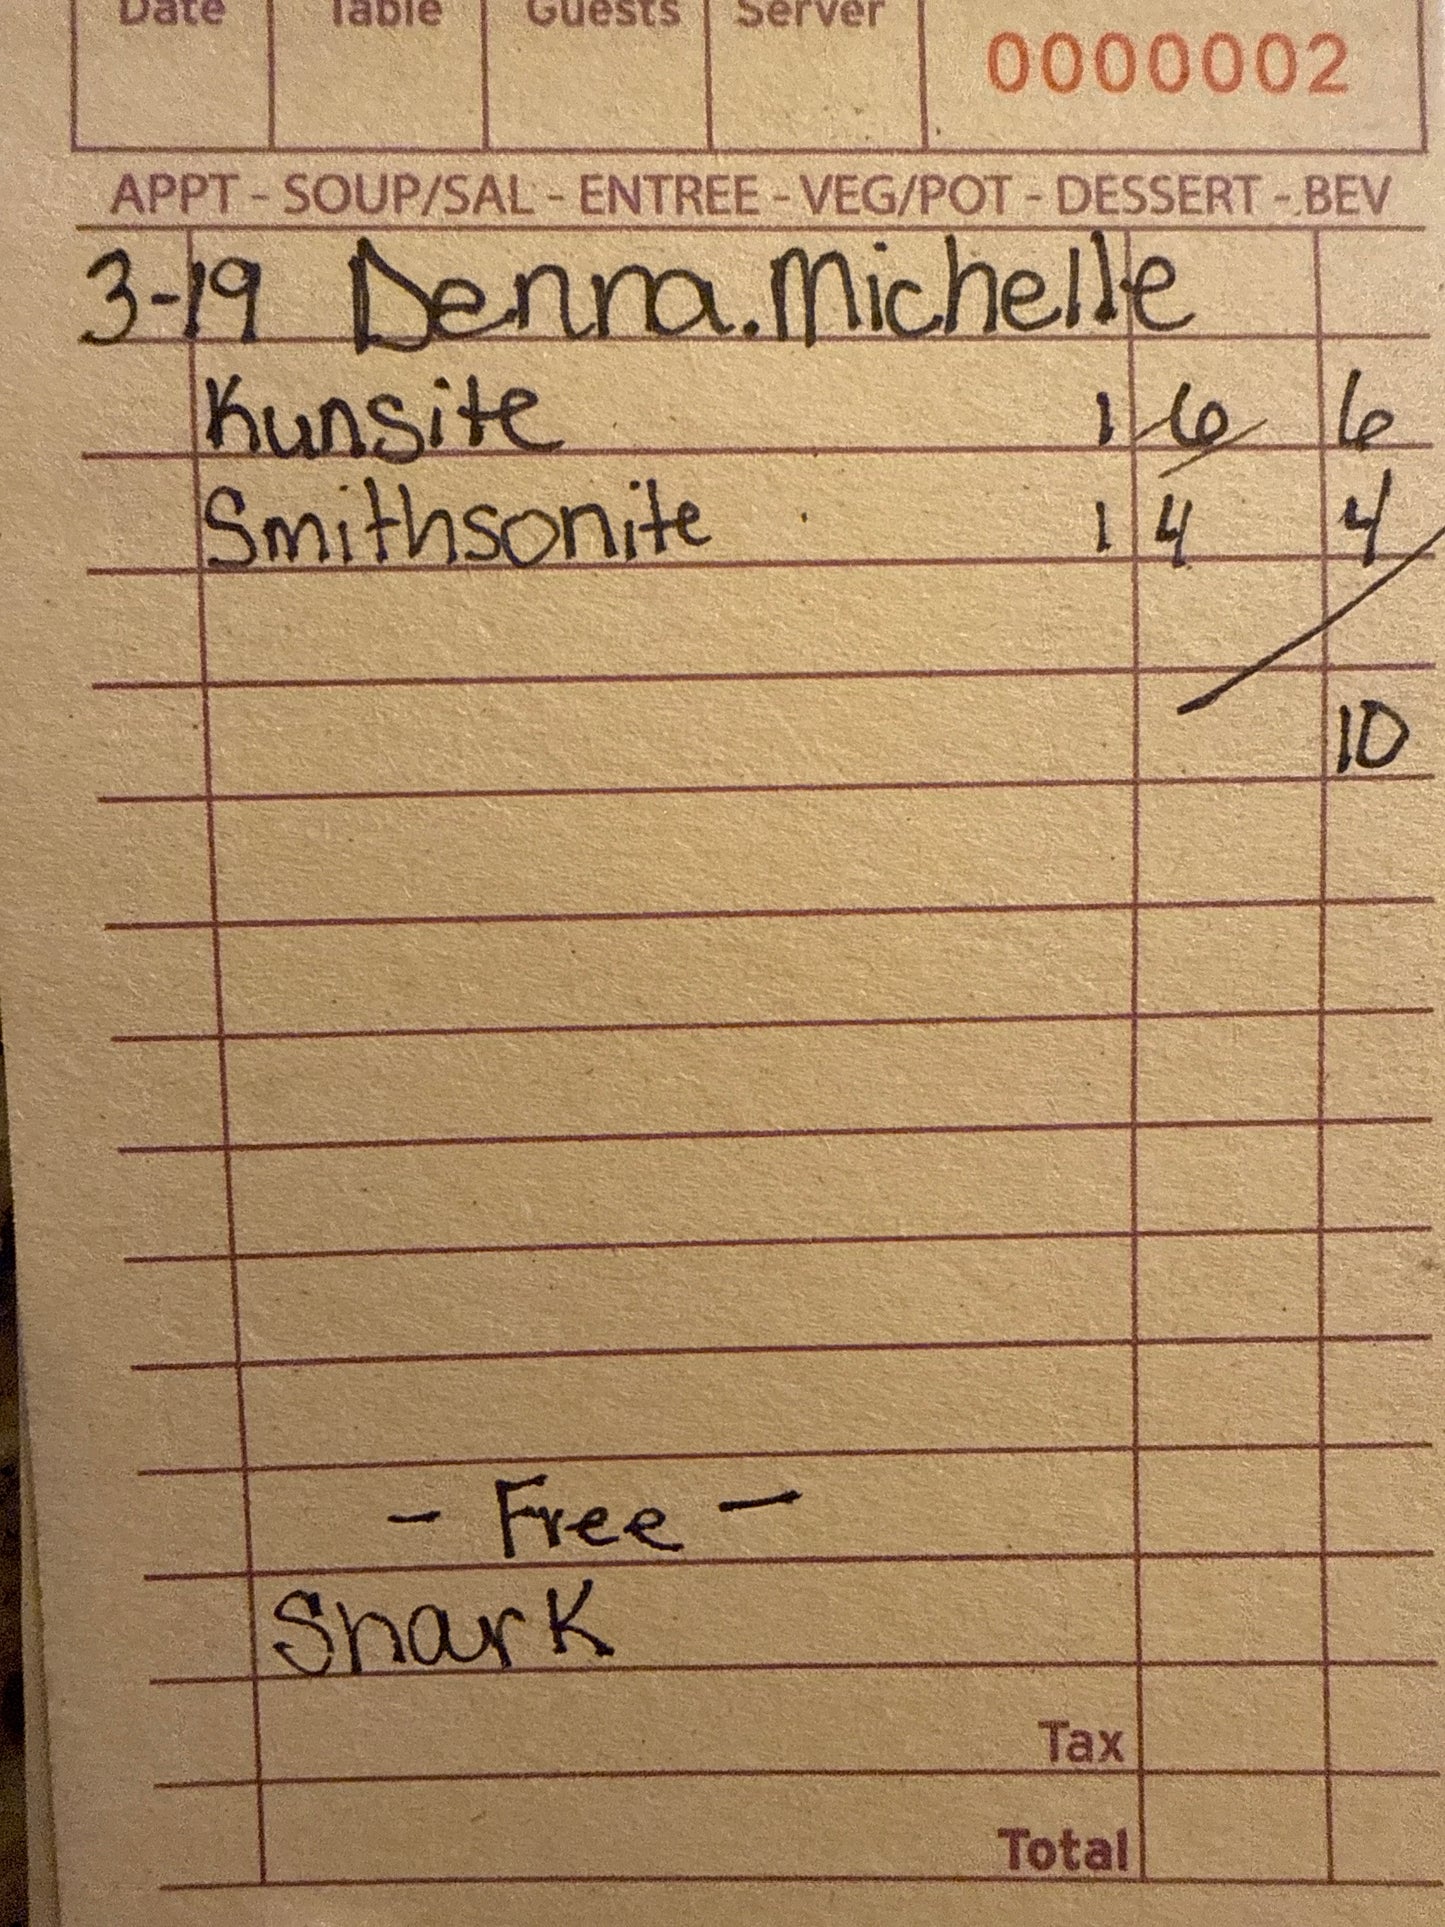 Date Table Guests Server
0000002
APPT - SOUP/SAL - ENTREE - VEG/POT - DESSERT - BEV
3-19 Denna.Michelle
Kunsite 1 6 6
Smithsonite 1 4 4
10
- Free -
Shark
Tax
Total